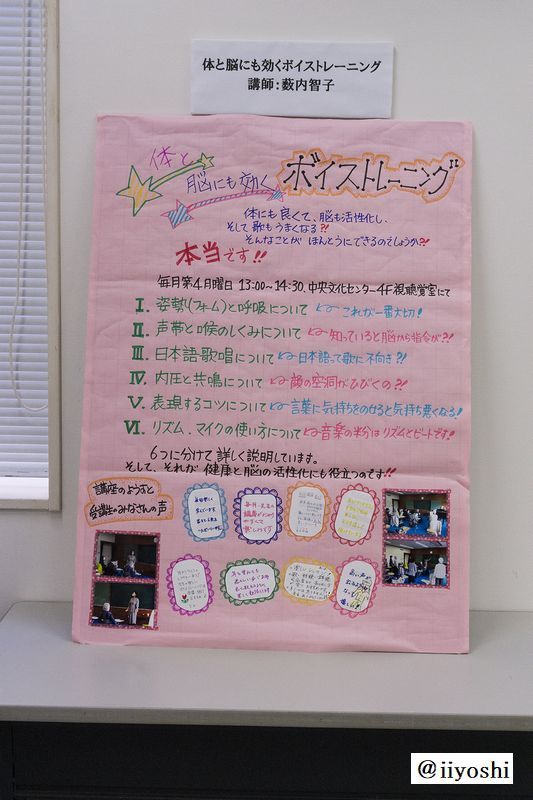 体と脳にも効くボイストレーニング
講師:薮内智子
体と
脳にも効く
ボイストレーニング
体にも良くて、脳も活性化し、
そして歌もうまくなる?!
そんなことが ほんとうにできるのでしょうか?!
本当です!!
毎月第4月曜日 13:00~14:30. 中央文化センター4F視聴覚室にて
Ⅰ. 姿勢(フォーム)と呼吸について これが一番大切!
Ⅱ. 声帯と喉のしくみについて 知っていると脳から指令が?!
Ⅲ. 日本語歌唱について 日本語って歌に不向き?!
Ⅳ. 内圧と共鳴について 顔の空洞がひびくの?!
Ⅴ. 表現するコツについて 言葉に気持ちをのせると気持ち悪くなる!
Ⅵ. リズム、マイクの使い方について 音楽の半分はリズムとビートです!
6つに分けて詳しく説明しています。
そして、それが 健康と脳の活性化にも役立つのです!!
講座のようすと
受講生のみなさんの声
@iiyoshi